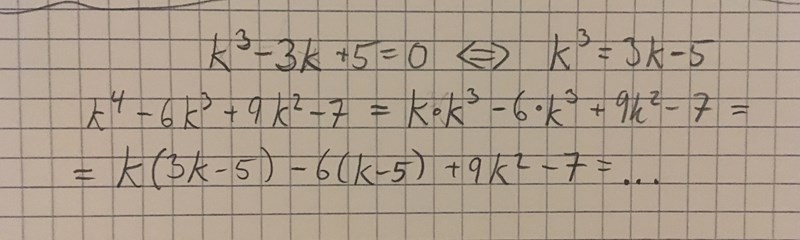 k³-3k+5=0 ⇔ k³=3k-5
k⁴-6k³+9k²-7 = k·k³-6·k³+9k²-7 =
= k(3k-5)-6(k-5)+9k²-7=...